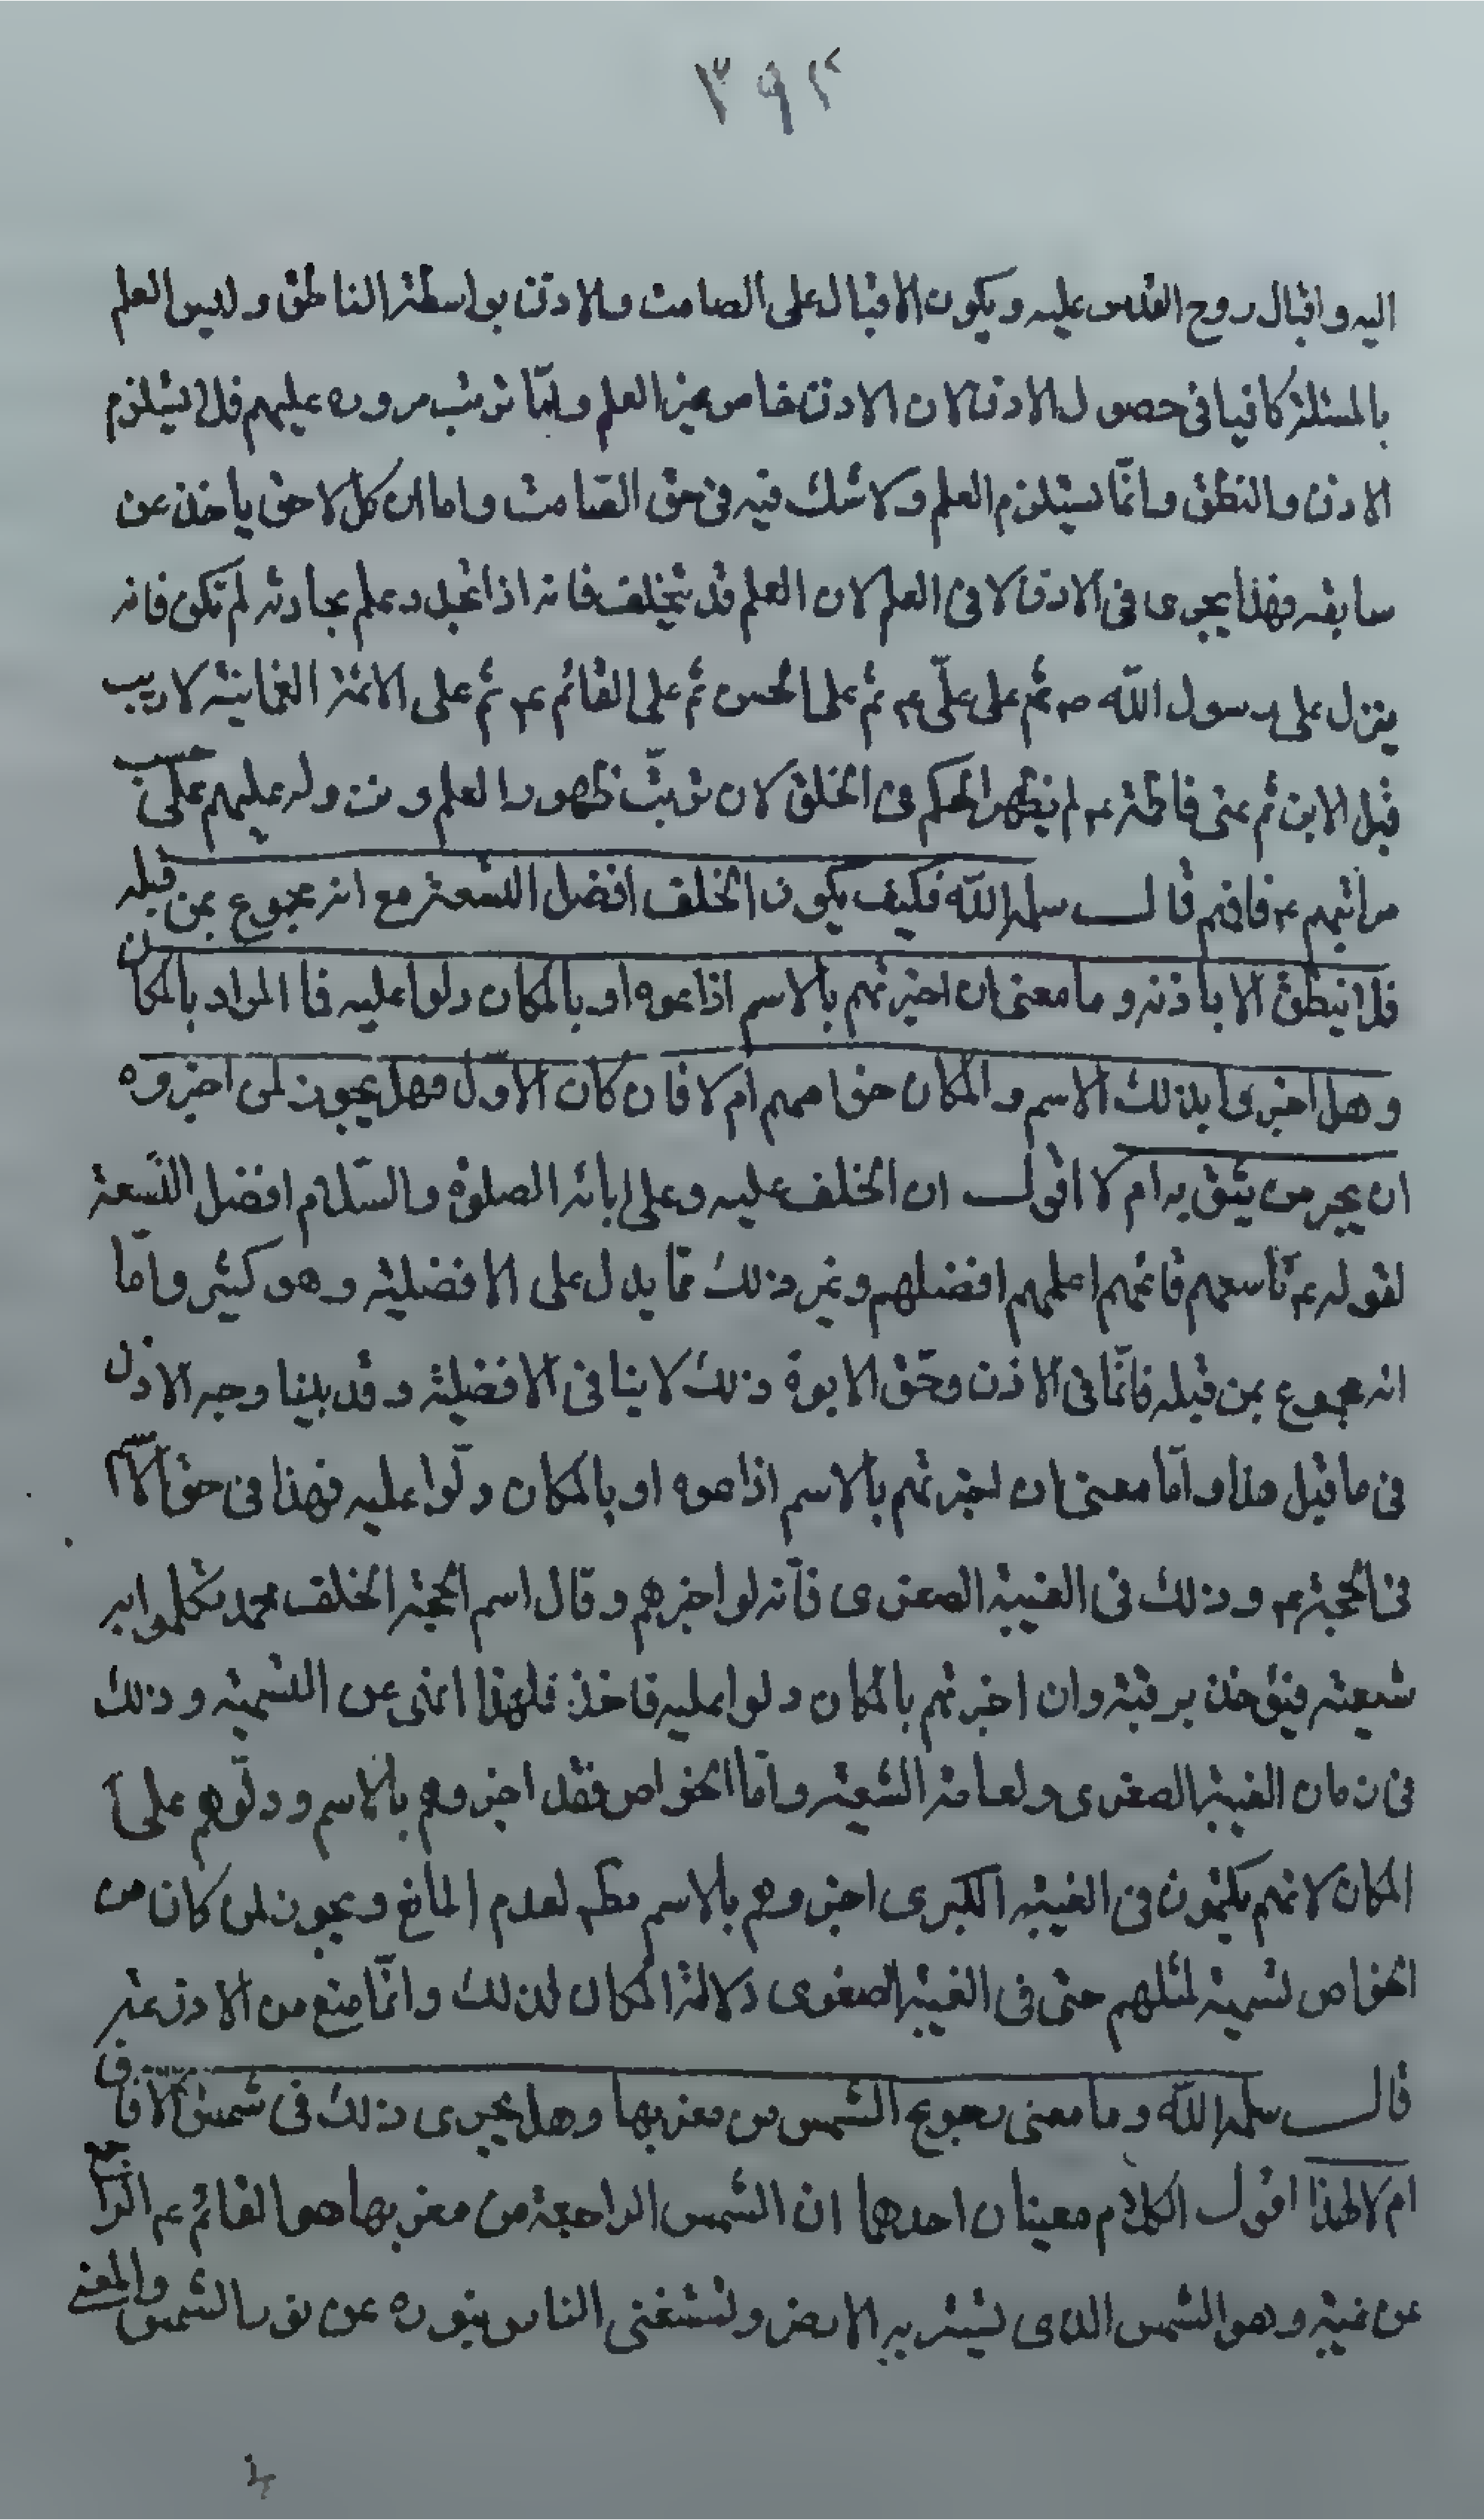 ٣٩٢
اليه واقبال روح القدس عليه ويكون الاقبال على الصامت والاذن بواسطة الناطق وليس العلم
بالمستلزم كافيا فى حصول الاذن لان الاذن خاص غير العلم وامّا ترتب مروره عليهم فلا يستلزم
الاذن والنطق وانّما يستلزم العلم ولا شك فيه فى حق الصّامت واما ان كل لاحق ياخذ عن
سابقه فهذا يجرى فى الاذن لا فى العلم لان العلم قد يتخلف فانه اذا تجدد علم بحادثه لم تكن فانه
ينزل على رسول اللّه ص ثم على علىّ ع ثم على الحسن ثم على القائم ع ثم على الائمة الثمانية لا ريب
قبل الابن ثم على فاطمة ع لم يظهر الحكم فى الخلق لان ترتّب ظهور العلم ونزوله عليهم على حسب
مراتبهم ع فافهم قال سلمه اللّه فكيف يكون الخلف افضل التسعة مع انه محجوج بمن قبله
فلا ينطق الا باذنه وما معنى ان اخبرتهم بالاسم اذاعوه او بالمكان دلوا عليه فا المراد بالمكان
وهل اخبروا بذلك الاسم والمكان خواصهم ام لا فان كان الاوّل فهل يجوز لمن اخبروه
ان يخبر من يثق به ام لا اقول ان الخلف عليه وعلى ابائه الصلوة والسّلام افضل التسعة
لقوله ع تاسعهم قائمهم اعلمهم افضلهم وغير ذلك ممّا يدل على الافضلية وهو كثير وامّا
انه محجوج بمن قبله فانّما فى الاذن وحق الابوة وذلك لا ينافى الافضلية وقد بينا وجه الاذن
فى ما قبل هذا وامّا معنى ان اخبرتهم بالاسم اذاعوه او بالمكان دلّوا عليه فهذا فى حق الاسم
فى الحجة ع وذلك فى الغيبة الصغرى فانّه لو اخبرهم وقال اسم الحجة الخلف محمد تكلموا به
شيعته فيؤخذ برقبته وان اخبرتهم بالمكان دلوا عليه فاخذ فلهذا نهى عن التسمية وذلك
فى زمان الغيبة الصغرى ولعامة الشيعة وامّا الخواص فقد اخبروهم بالاسم ودلّوهم على
المكان لانهم يكتمون فى الغيبة الكبرى اخبروهم بالاسم مطلقا لعدم المانع ويجوز لمن كان من
الخواص تسمية لمثلهم حتى فى الغيبة الصغرى دلالة المكان لذلك وانّما منع من الاذن عنه
قال سلمه اللّه وما معنى رجوع الشمس من مغربها وهل يجرى ذلك فى شمس الآفاق
ام لا لهذا اقول الكلام معينان احدهما ان الشمس الراجعة من مغربها هو القائم ع الراجع
عن غيبة وهو الشمس الذى يستنير به الارض وتستغنى الناس بنوره عن نور الشمس والمعنى